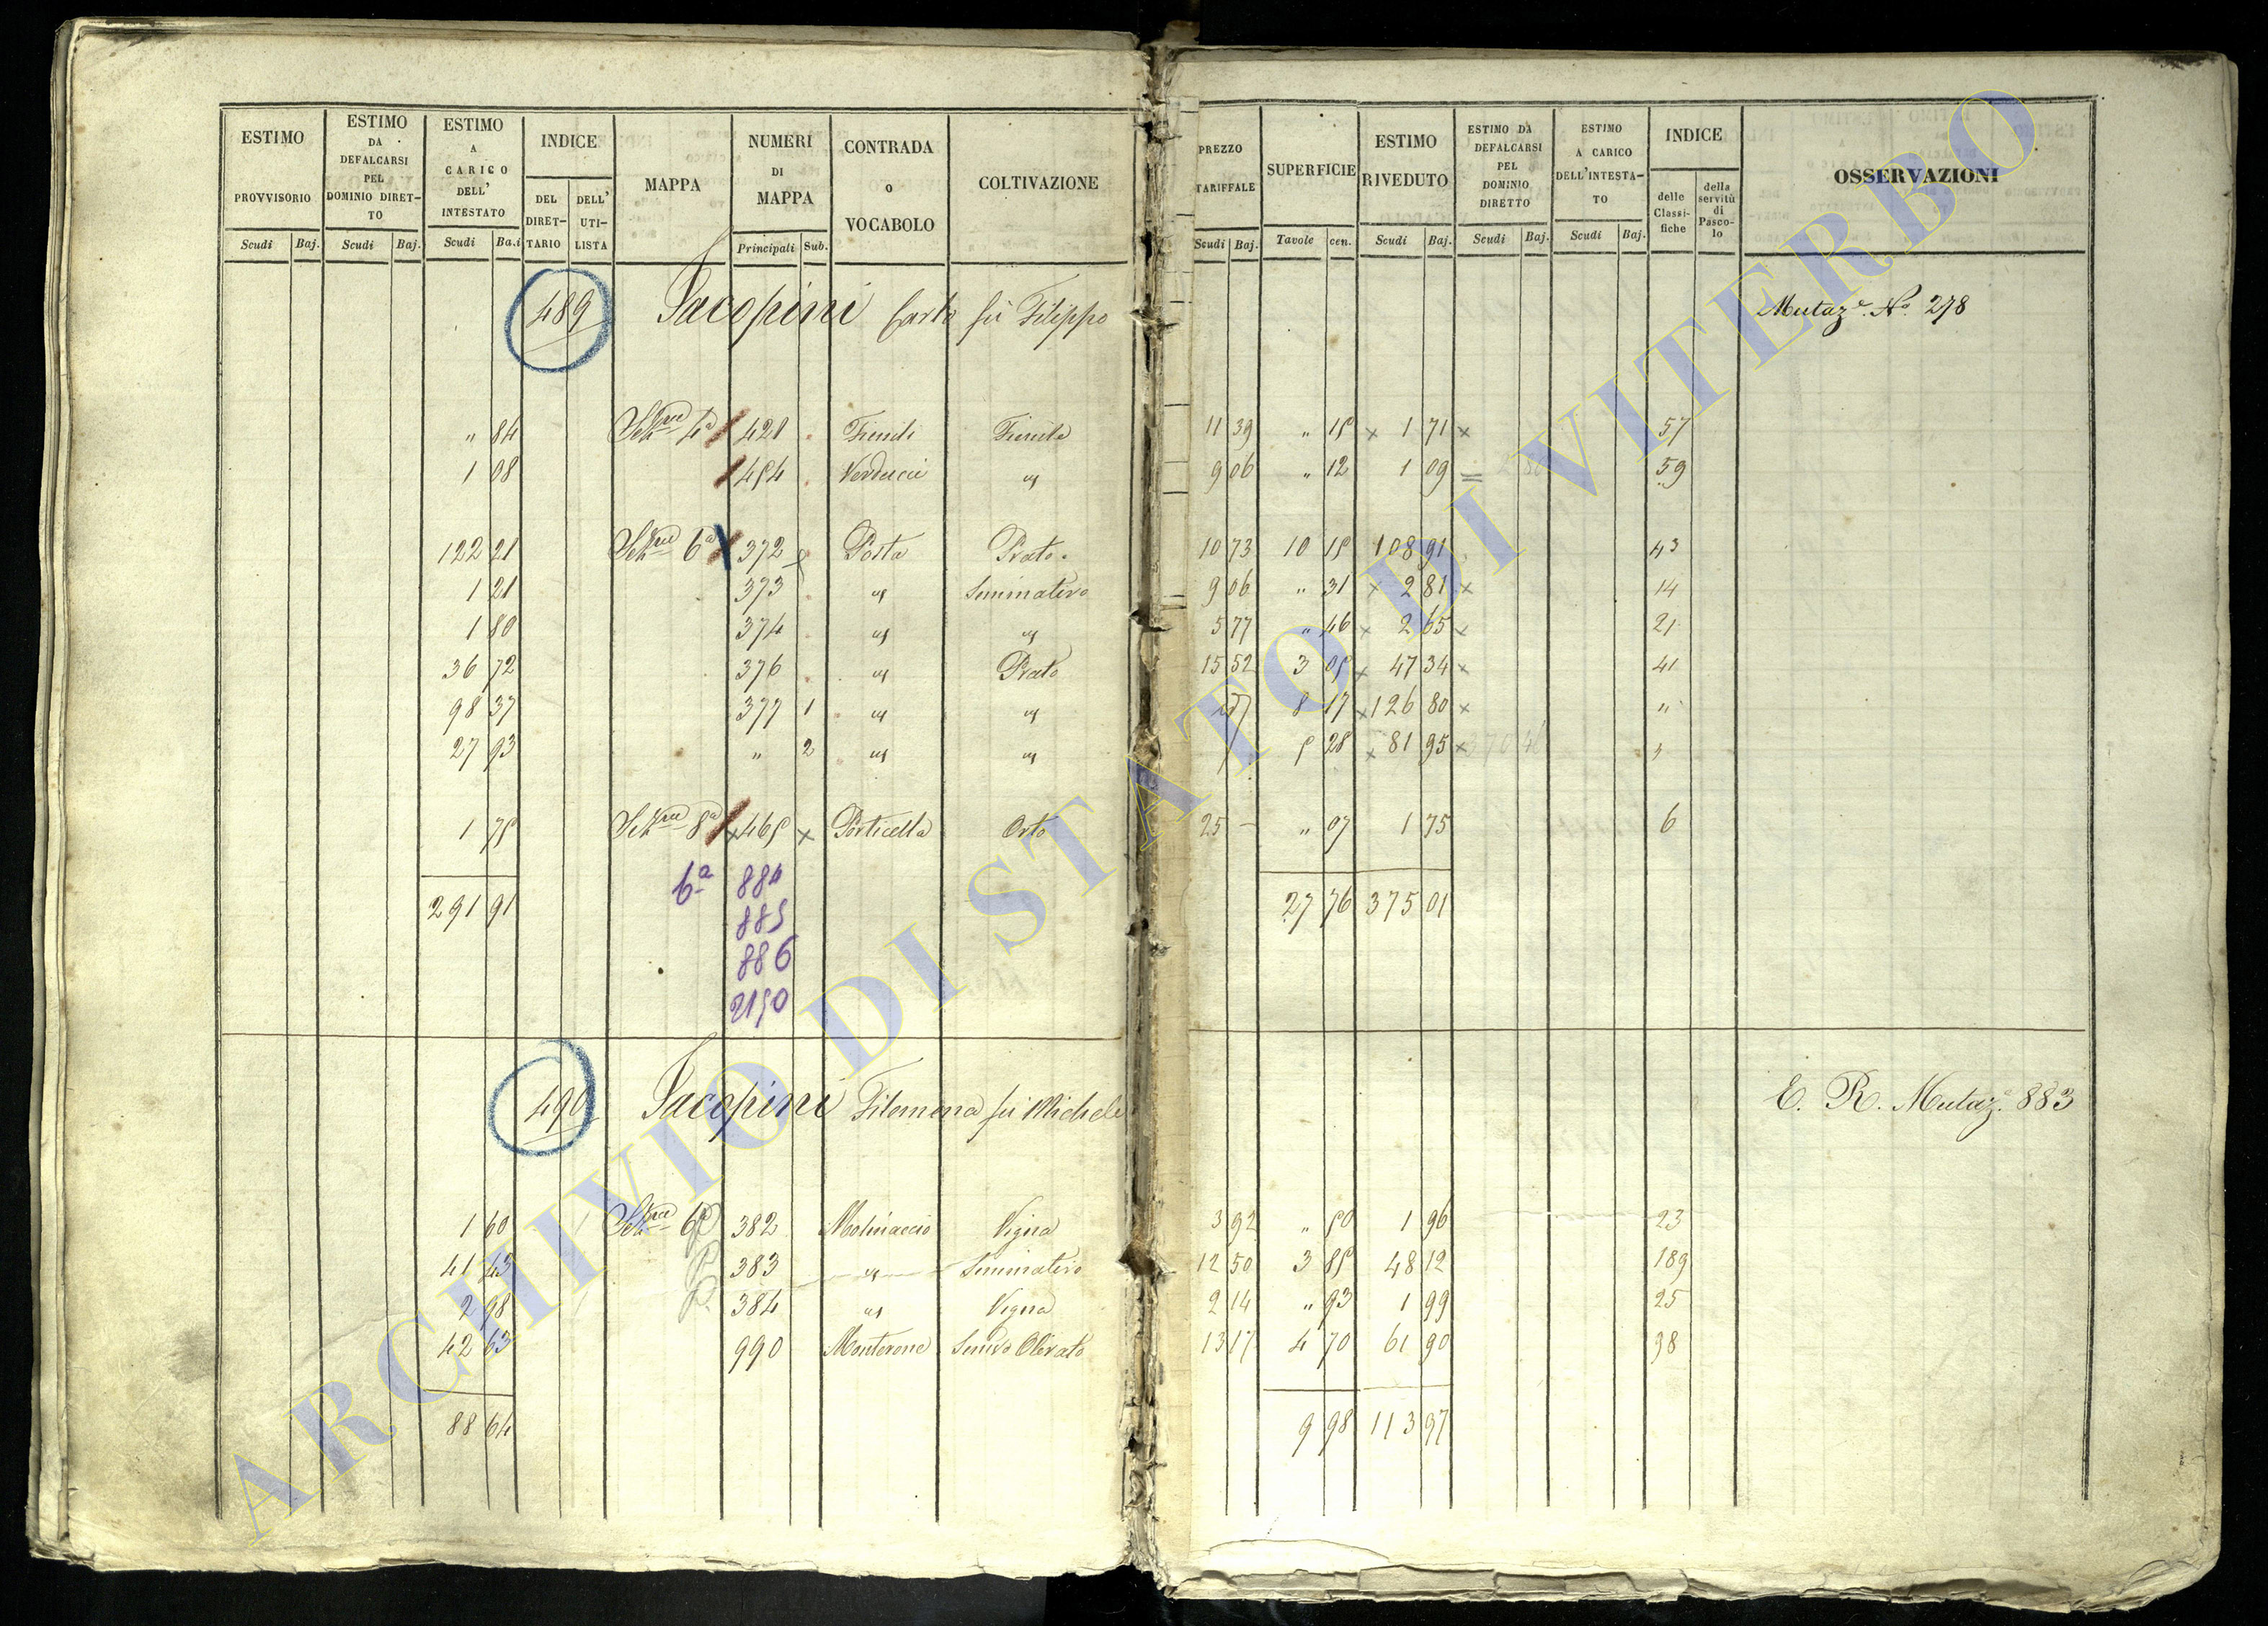 ESTIMO PROVVISORIO | ESTIMO DA DEFALCARSI PEL DOMINIO DIRETTO | ESTIMO A CARICO DELL' INTESTATO | INDICE | MAPPA | NUMERI DI MAPPA | CONTRADA O VOCABOLO | COLTIVAZIONE | PREZZO TARIFFALE | SUPERFICIE | ESTIMO RIVEDUTO | ESTIMO DA DEFALCARSI PEL DOMINIO DIRETTO | ESTIMO A CARICO DELL'INTESTATO | INDICE | OSSERVAZIONI
DEL DIRETTARIO | DELL' UTILISTA | delle Classifiche | della servitù di Pascolo
Scudi | Baj. | Scudi | Baj. | Scudi | Ba.i | Principali | Sub. | Scudi | Baj. | Tavole | cen. | Scudi | Baj. | Scudi | Baj. | Scudi | Baj.
489 Jacopini Carlo fù Filippo Mutaz.e No. 278
" 84 4a 421 Fienile 11 39 " 15 x 1 71 x 57
1 08 454 Verducci " 9 06 " 12 1 09 59
122 21 6a 372 x Posta Prato 10 73 10 15 108 91 43
1 21 373 " Seminativo 9 06 " 31 x 2 81 x 14
1 80 374 " " 5 77 " 46 x 2 65 x 21
36 72 376 " Prato 15 52 3 05 x 47 34 x 41
98 37 377 1 " " " 8 17 x 126 80 x "
27 93 " 2 " " 5 28 x 81 95 x
1 75 8a x 465 x Porticella Orto 25 — " 07 1 75 6
6a 884
291 91 27 76 375 01
885
886
2150
490 Jacopini Filomena fù Michele E. R. Mutaz. 883
1 60 6a 382 Molinaccio Vigna 3 92 " 50 1 96 23
41 43 383 " Seminativo 12 50 3 85 48 12 189
2 98 384 " Vigna 2 14 " 93 1 99 25
42 63 990 Monterone Semivo Olivato 13 17 4 70 61 90 38
88 64 9 98 113 97
ARCHIVIO DI STATO DI VITERBO